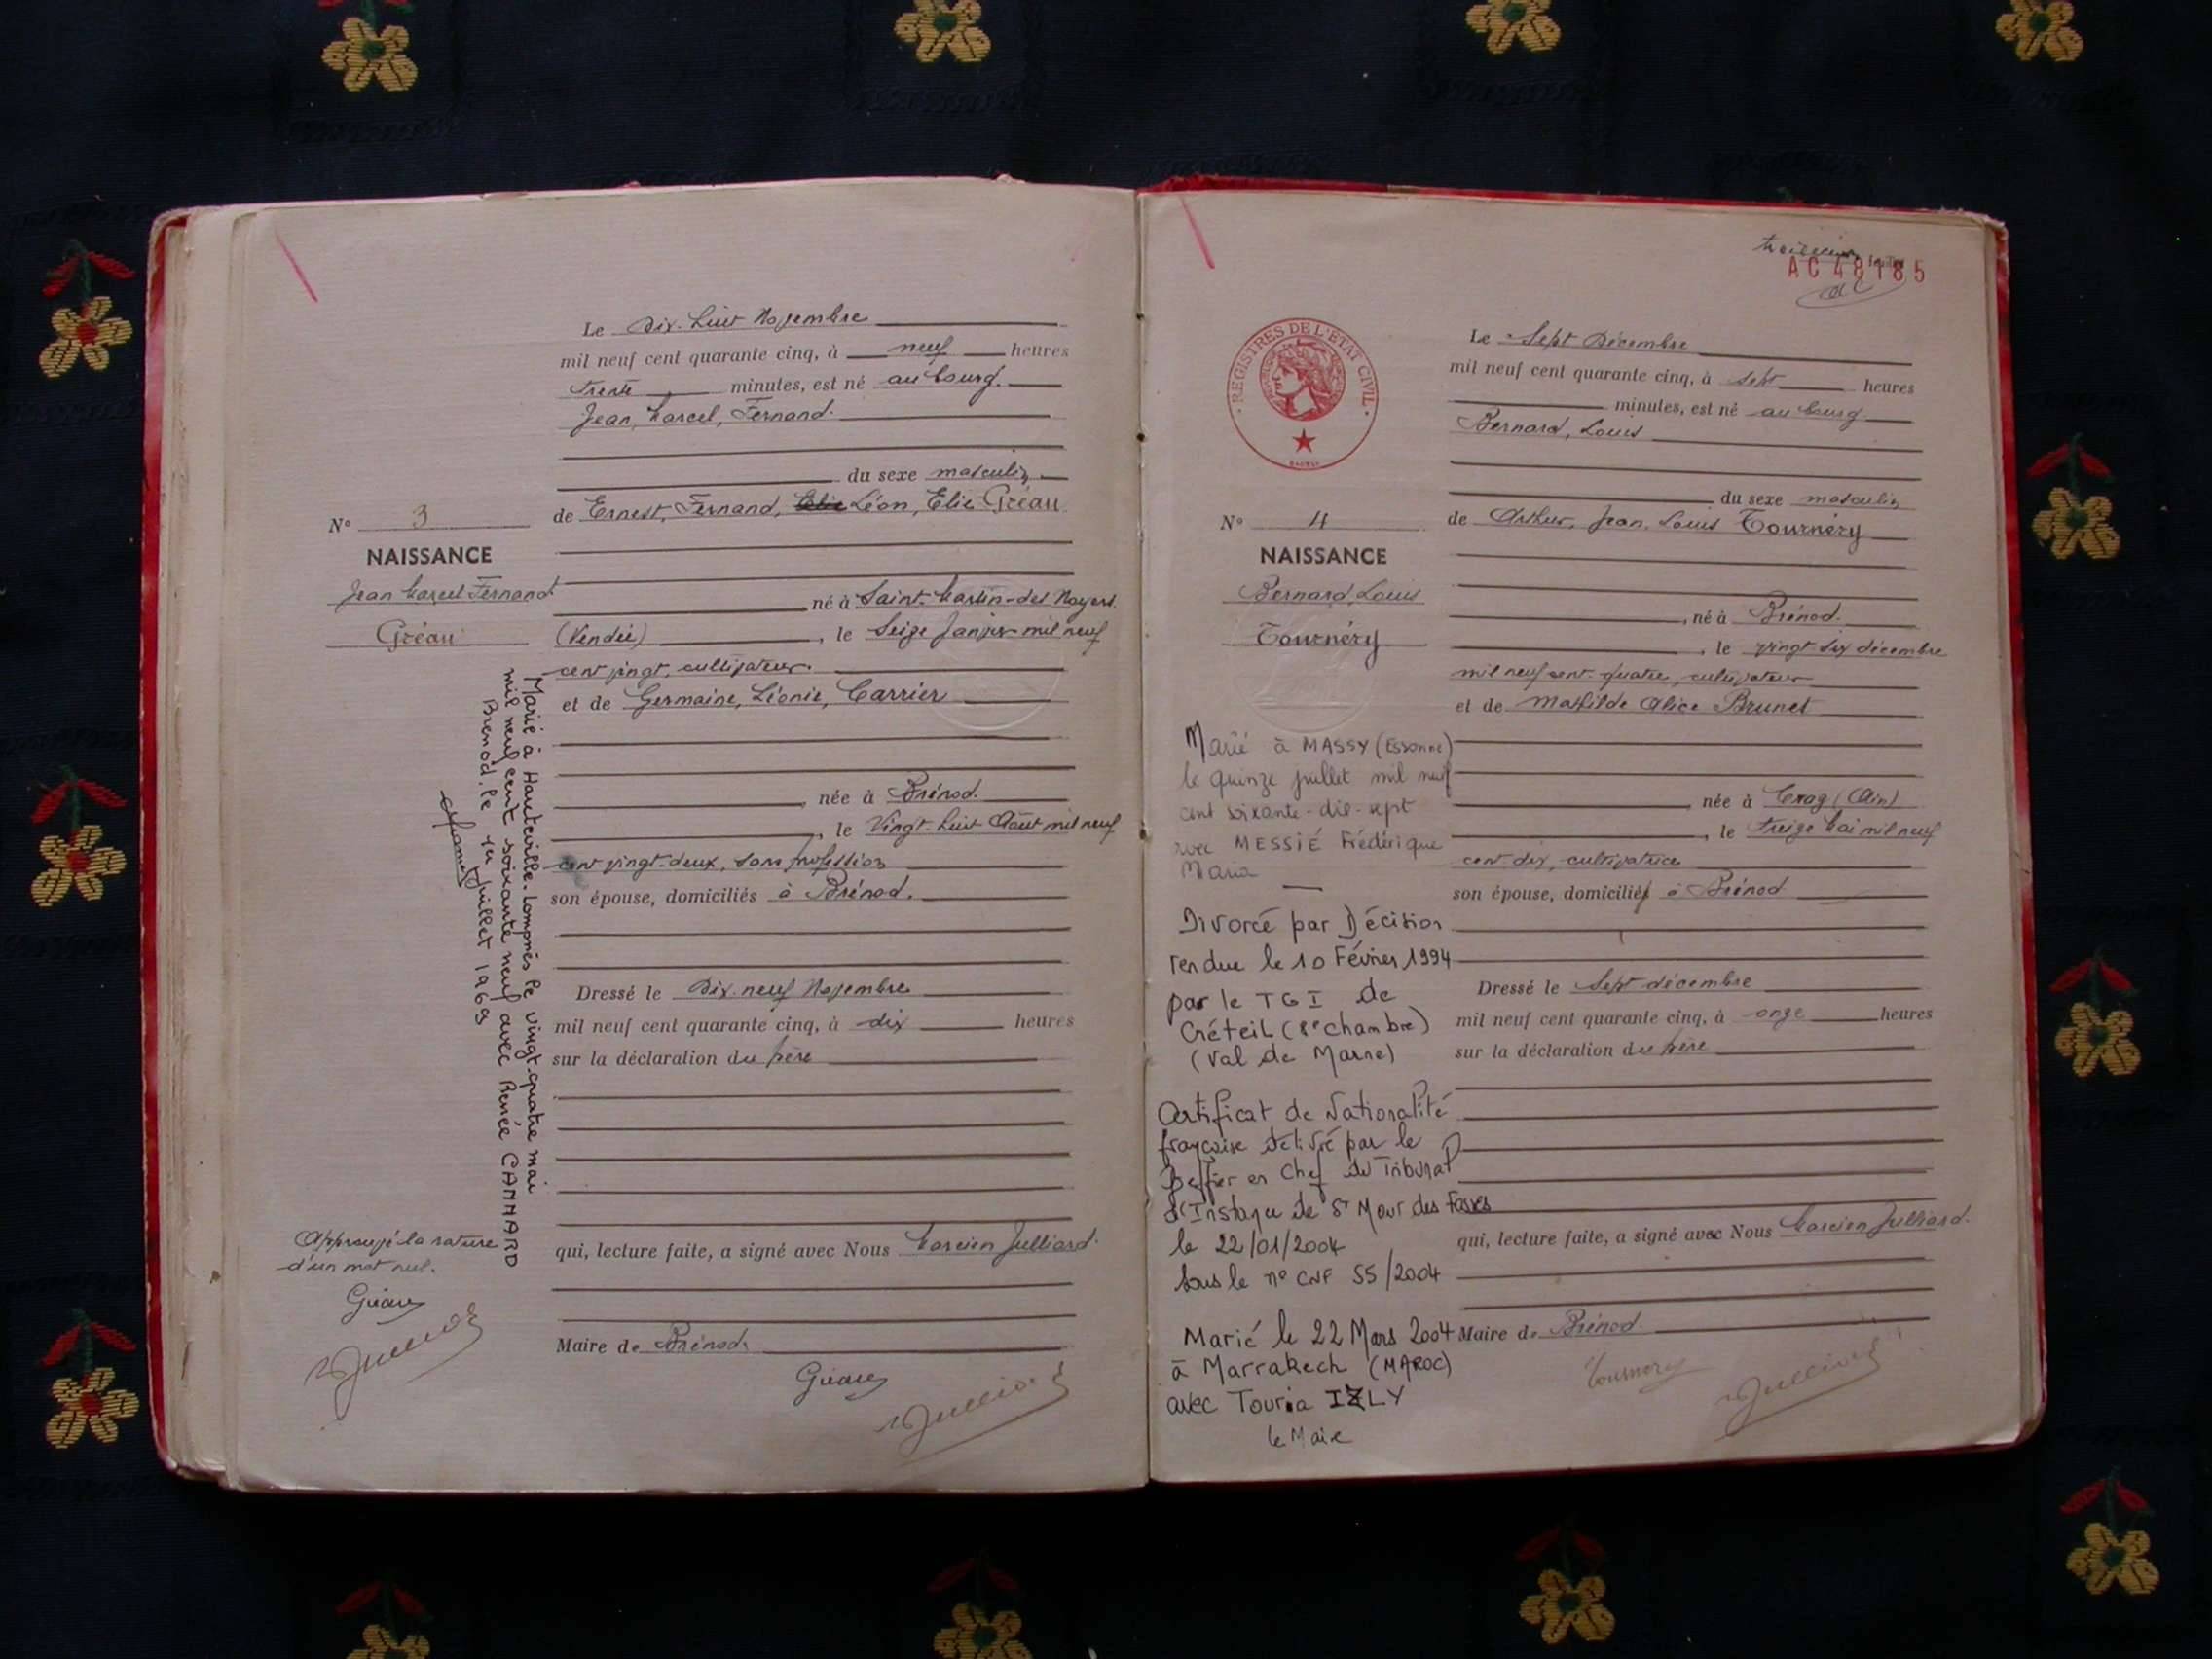 Le Dix-huit Novembre
mil neuf cent quarante cinq, à neuf heures
trente minutes, est né au bourg.
Jean, Marcel, Fernand.
du sexe masculin
N° 3
de Ernest, Fernand, Elie Léon, Elie Gréau
NAISSANCE
Jean Marcel Fernand
Gréau
né à Saint-Martin-des Noyers
(Vendée), le Seize Janvier mil neuf
cent vingt, cultivateur.
et de Germaine, Léonie, Carrier
née à Brénod.
, le Vingt-huit Août mil neuf
cent vingt-deux, sans profession
son épouse, domiciliés à Brénod.
Dressé le Dix-neuf Novembre
mil neuf cent quarante cinq, à dix heures
sur la déclaration du père
qui, lecture faite, a signé avec Nous Marcien Julliard.
Maire de Brénod.
Gréau
Julliard
Marié à Hauteville-Lompnès le vingt-quatre mai
mil neuf cent soixante neuf avec Renée CANNARD
Brénod, le Juillet 1969
Approuvé la rature
d'un mot nul.
Gréau
Julliard
feuillet
AC 48185
REGISTRES DE L'ÉTAT CIVIL
Le Sept Décembre
mil neuf cent quarante cinq, à sept heures
minutes, est né au bourg
Bernard, Louis
du sexe masculin
N° 4
de Arthur, Jean, Louis Tournéry
NAISSANCE
Bernard, Louis
Tournéry
, né à Brénod.
, le vingt six décembre
mil neuf cent-quatre, cultivateur
et de Mathilde Alice Brunet
née à (Ain)
, le treize Mai mil neuf
cent dix, cultivatrice
son épouse, domiciliés à Brénod
Dressé le Sept décembre
mil neuf cent quarante cinq, à onze heures
sur la déclaration du père
qui, lecture faite, a signé avec Nous Marcien Julliard.
Maire de Brénod.
Tournery
Julliard
Marié à MASSY (Essonne)
le quinze juillet mil neuf
cent soixante-dix-sept
avec MESSIÉ Frédérique
Maria
Divorcé par Décision
rendue le 10 Février 1994
par le TGI de
Créteil (8e chambre)
(Val de Marne)
Certificat de Nationalité
française délivré par le
Greffier en Chef du Tribunal
d'Instance de St Maur des Fossés
le 22/01/2004
sous le n° CNF 55/2004
Marié le 22 Mars 2004
à Marrakech (MAROC)
avec Touria IZLY
le Maire